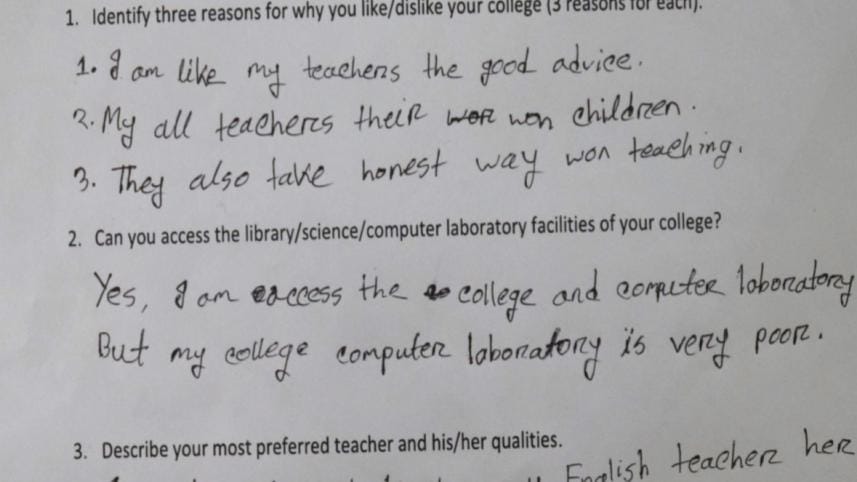 1. Identify three reasons for why you like/dislike your college (3 reasons for each).
1. I am like my teachers the good advice.
2. My all teachers their won children.
3. They also take honest way won teaching.
2. Can you access the library/science/computer laboratory facilities of your college?
Yes, I am access the college and computer laboratory
But my college computer laboratory is very poor.
3. Describe your most preferred teacher and his/her qualities.
English teacher her